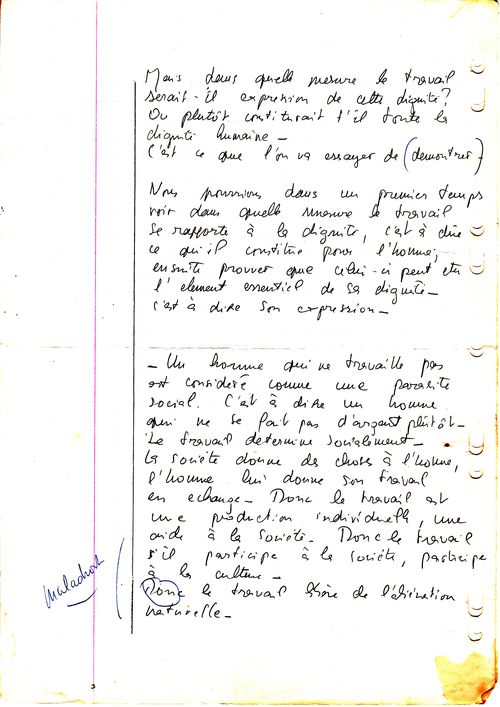 Mais dans quelle mesure le travail
serait-il expression de cette dignité?
Ou plutôt constiturait t'il toute la
dignité humaine -
C'est ce que l'on va essayer de (demontrer -)
Nous pourrions dans un premier temps
voir dans quelle mesure le travail
se rapporte à la dignité, c'est à dire
ce qu'il constitue pour l'homme;
ensuite prouver que celui-ci peut etre
l'element essentiel de sa dignité -
c'est à dire son expression -
- Un homme qui ne travaille pas
est considéré comme une parasite
social. C'est à dire un homme
qui ne se fait pas d'argent plutôt -
Le travail determine socialement -
la société donne des choses à l'homme,
l'homme lui donne son travail
en echange - Donc le travail est
une production individuelle, une
aide à la société - Donc le travail
s'il participe à la société, participe
à la culture -
maladroit
Donc le travail libère de l'aliénation
naturelle -